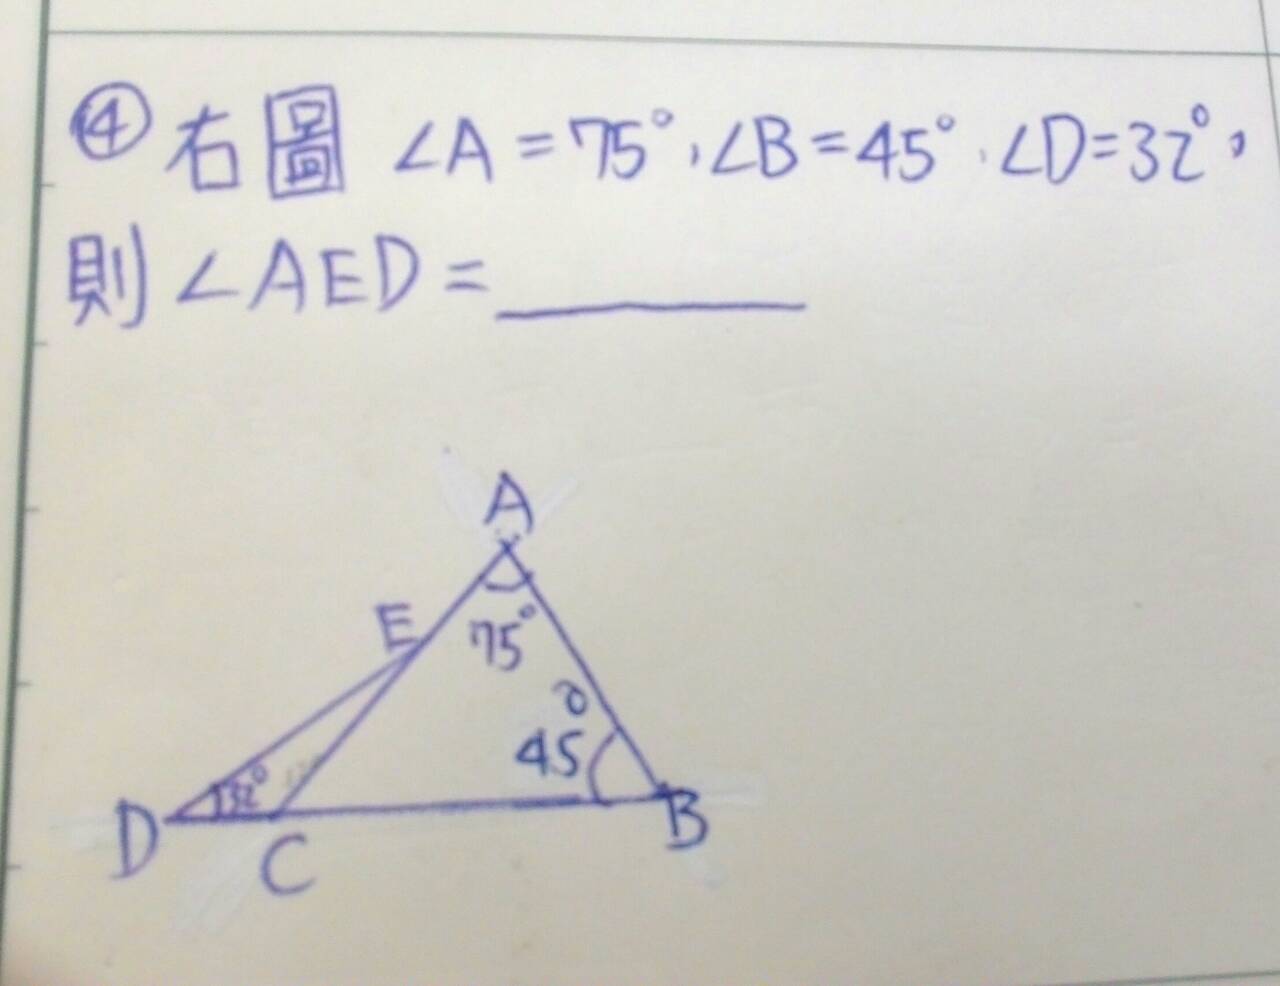 ④ 右圖 ∠A=75°,∠B=45°.∠D=32°,
則∠AED=________
A
E
75°
45°
32°
D
C
B